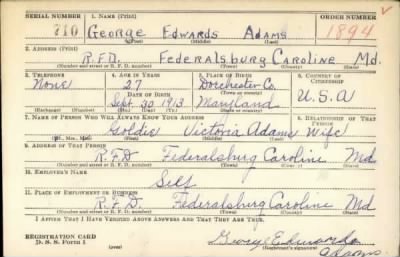 SERIAL NUMBER 1. NAME (Print) ORDER NUMBER
710 George Edwards Adams 1894
(First) (Middle) (Last)
2. ADDRESS (Print)
R.F.D. Federalsburg Caroline Md.
(Number and street or R. F. D. number) (Town) (County) (State)
3. TELEPHONE 4. AGE IN YEARS 5. PLACE OF BIRTH 6. COUNTRY OF CITIZENSHIP
None 27 Dorchester Co.
DATE OF BIRTH (Town or county)
Sept. 30 1913 Maryland U.S.A
(Exchange) (Number) (Mo.) (Day) (Yr.) (State or country)
7. NAME OF PERSON WHO WILL ALWAYS KNOW YOUR ADDRESS 8. RELATIONSHIP OF THAT PERSON
Goldie Victoria Adams Wife
(Mr., Mrs., Miss) (First) (Middle) (Last)
9. ADDRESS OF THAT PERSON
R.F.D Federalsburg Caroline Md
(Number and street or R. F. D. number) (Town) (County) (State)
10. EMPLOYER'S NAME
Self
11. PLACE OF EMPLOYMENT OR BUSINESS
R.F.D. Federalsburg Caroline Md
(Number and street or R. F. D. number) (Town) (County) (State)
I AFFIRM THAT I HAVE VERIFIED ABOVE ANSWERS AND THAT THEY ARE TRUE.
REGISTRATION CARD George Edwards
D. S. S. Form 1 (Registrant's signature)
Adams